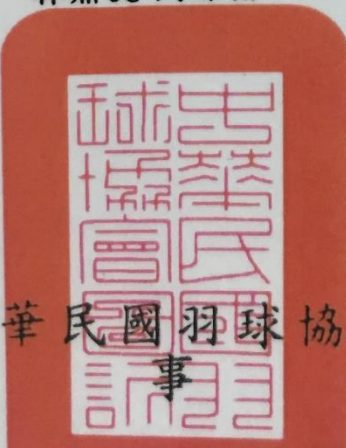 中華民國羽
球協會圖記
華民國羽球協
事